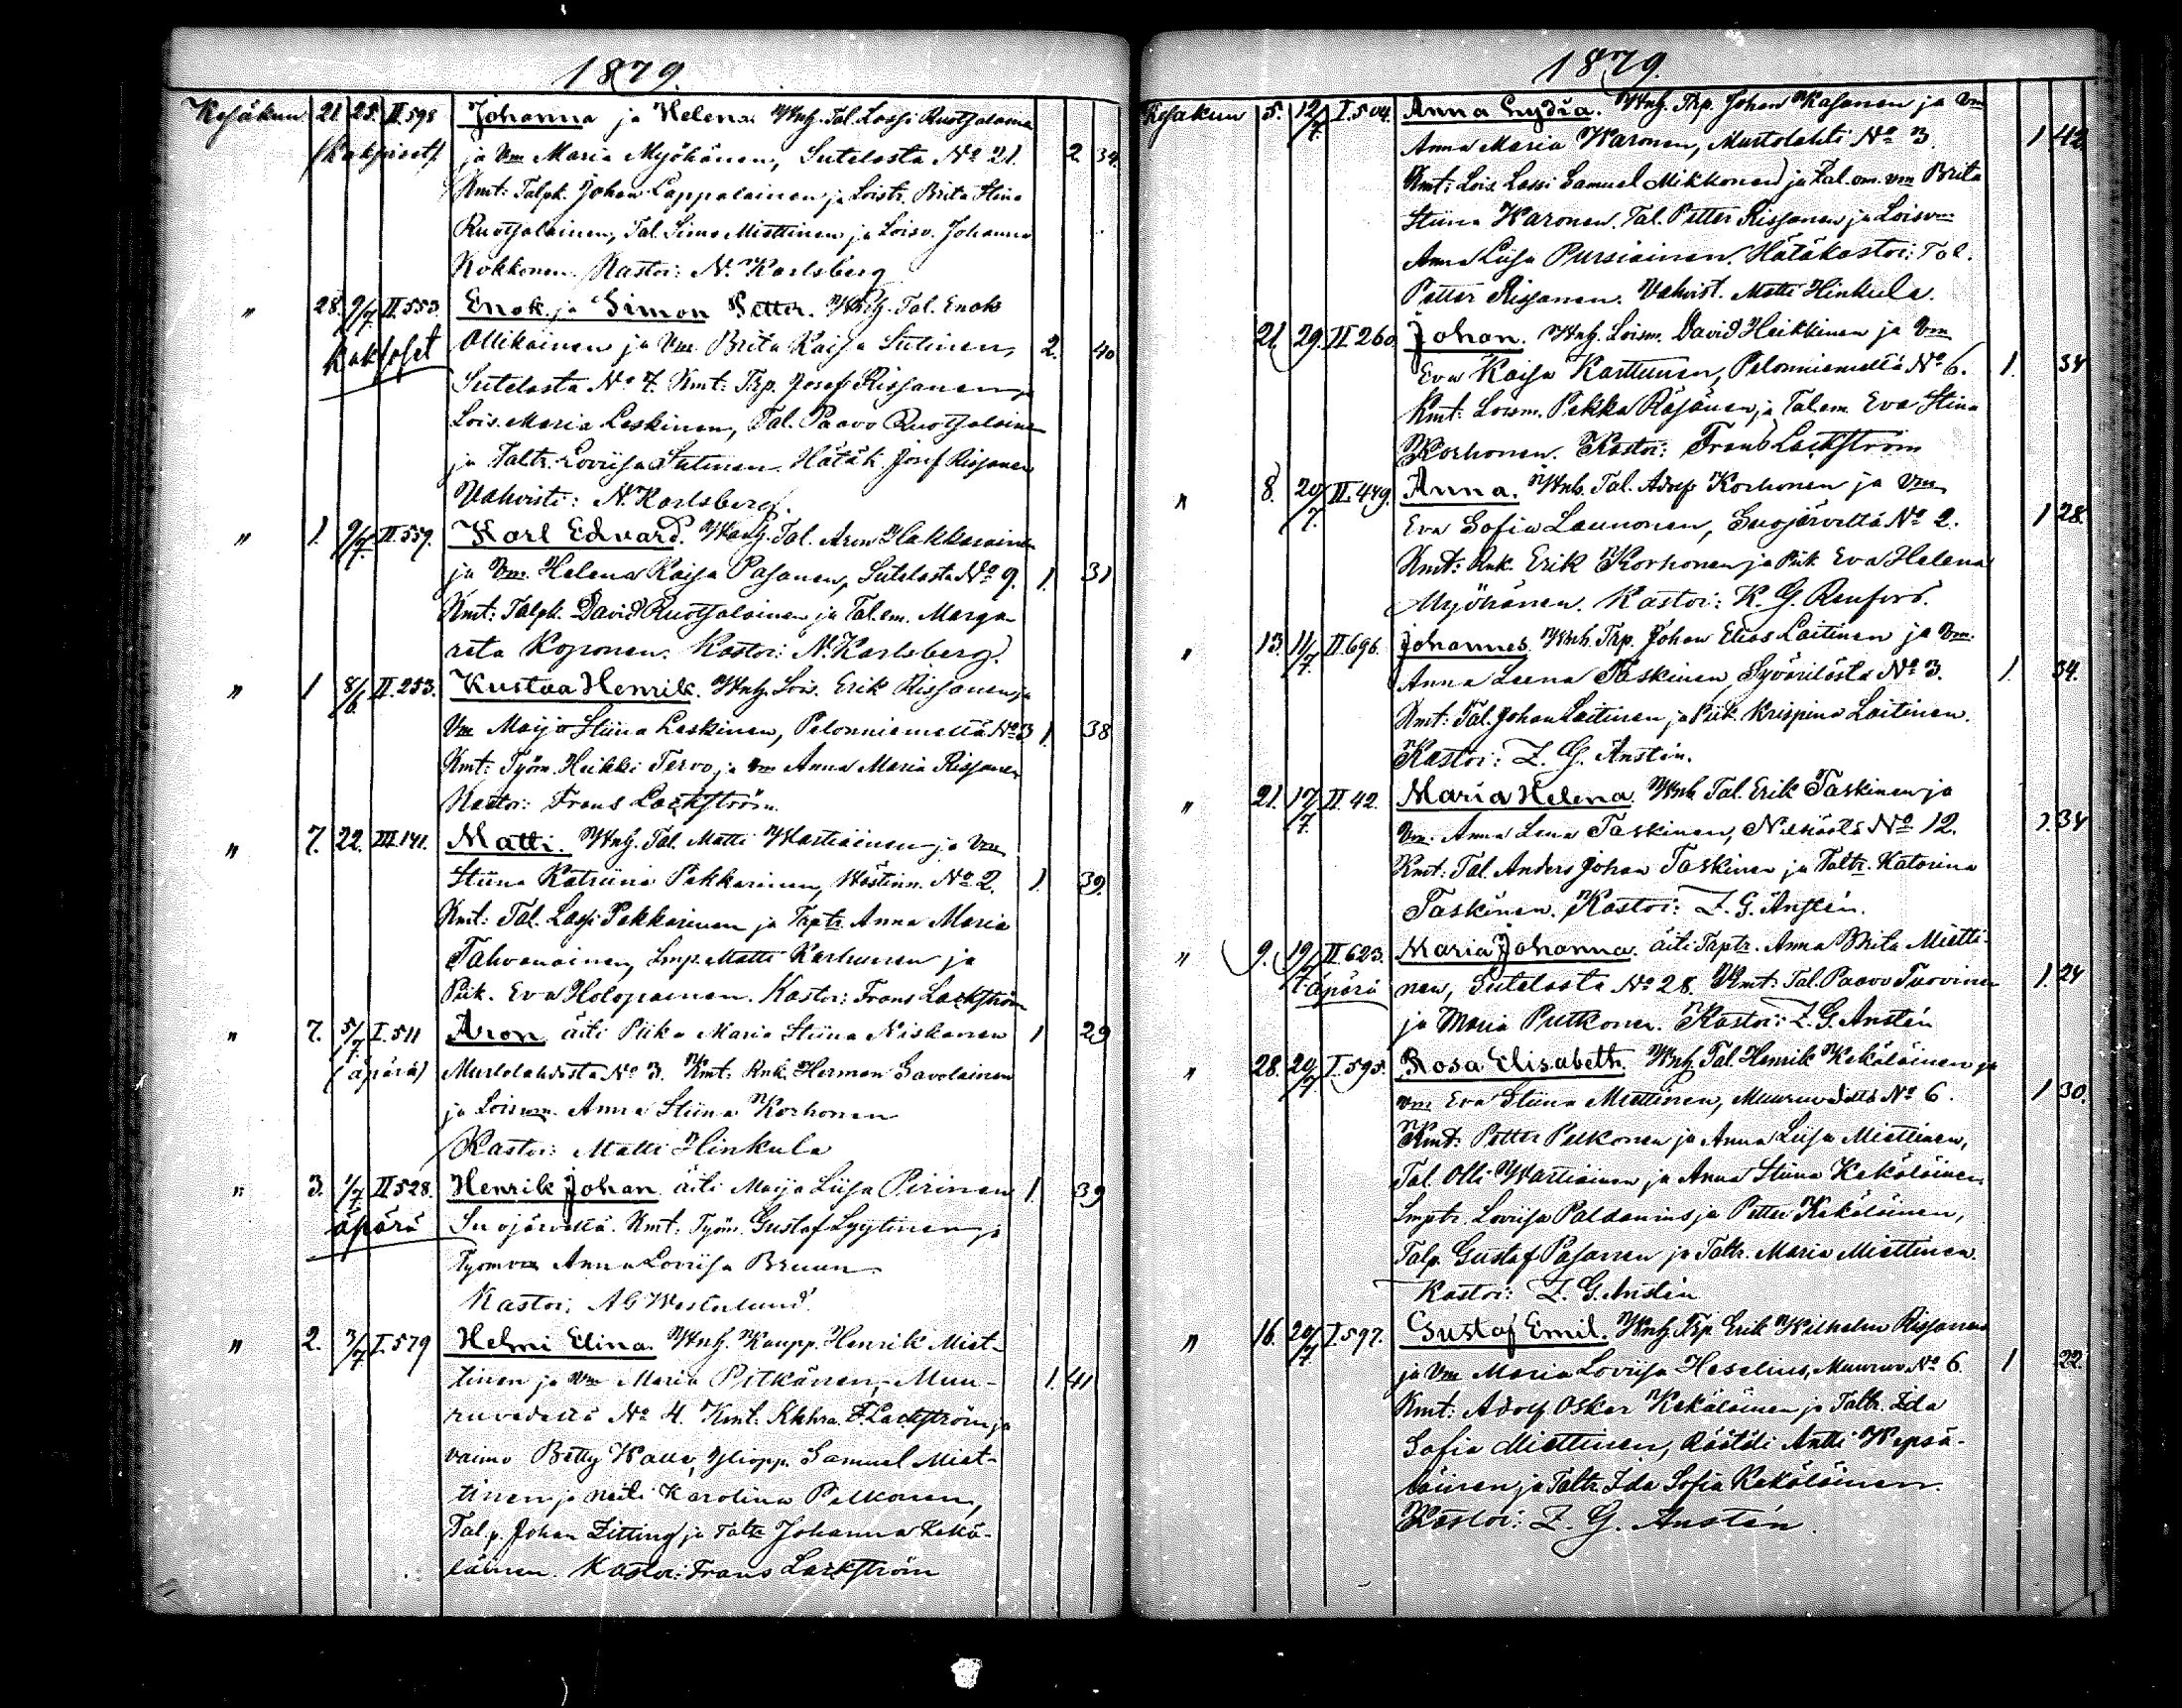 1879.
Kesäkuu 21. 25. II.598 Johanna ja Helena. Wnh. Tal. Lassi Ruotsalainen
(kaksoiset) ja Vm Maria Myöhänen, Sutelasta No 21. 2 34.
Kmt: Talpk. Johan Lappalainen ja Loistr. Brita Stina
Ruotsalainen, Tal. Simo Miettinen ja Loisv. Johanna
Kokkonen. Kastoi: N. Karlsberg
" 28. 9/7. II.553. Enok ja Simon Petter. Wnh. Tal. Enok
kaksoset Ollikainen ja Vm Brita Kaisa Sutinen, 2. 40
Sutelasta No 7. Kmt: Trp. Josef Rissanen ja
Lois. Maria Leskinen, Tal. Paavo Ruotsalainen
ja Taltr. Loviisa Sutinen. Hätäk. Josef Rissanen
Vahvisti: N. Karlsberg.
" 1. 9/7. II.559. Karl Edvard. Wanh. Tal. Aron Hakkarainen
ja Vm. Helena Kaisa Pasanen, Sutelasta No 9. 1. 31
Kmt: Talpk. David Ruotsalainen ja Tal.em. Marga-
reta Koponen. Kastoi: N. Karlsberg.
" 1 8/6 II.253. Kustaa Henrik. Wnh. Lois. Erik Rissanen ja
Vm Maija Stiina Leskinen, Pelonniemeltä No 3 1. 38
Kmt: Työm. Heikki Tervo ja vm Anna Maria Rissanen
Kastoi: Frans Lackström.
" 7. 22. III.141. Matti. Wnh. Tal. Matti Martiainen ja Vm
Stiina Katriina Pakkarinen, Västinn. No 2. 1. 39.
Kmt: Tal. Lassi Pakkarinen ja Trptr. Anna Maria
Tahvanainen, Lmp. Matti Karhunen ja
Piik. Eva Holopainen. Kastoi: Frans Lackström
" 7. 5/7. I.511 Aron äiti Piika Maria Stiina Niskanen 1 29
(äpärä) Murtolahdesta No 3. Kmt: Rnk. Herman Savolainen
ja Loisvm. Anna Stiina Korhonen
Kastoi: Matti Hinkula
" 3. 1/7 II 528. Henrik Johan äiti Maija Liisa Pirinen 1. 39
äpärä Suojärveltä. Kmt: Työm. Gustaf Lyytinen ja
Työmvm Anna Loviisa Bruun.
Kastoi: AG Westerlund.
" 2. 3/7. I.579 Helmi Elina. Wnh. Kaupp. Henrik Miet-
tinen ja vm Maria Pitkänen, Muu- 1. 41
ruvedeltä No 4. Kmt: Kkhra. F. Lackström ja
vaimo Betty Walle, Yliopp. Samuel Miet-
tinen ja neiti Karolina Pelkonen,
Talp. Johan Zitting ja Taltr. Johanna Kekä-
läinen. Kastoi: Frans Lackström
1879.
Kesäkuu 5. 12/7. I.504. Anna Lydia. Wnh. Trp. Johan Kasanen ja vm
Anna Maria Waronen, Murtolahti No 3. 1 42.
Kmt: Lois. Lassi Samuel Mikkonen ja Tal.em. vm Brita
Stiina Waronen. Tal. Petter Rissanen ja Loisvm
Anna Liisa Pursiainen. Hätäkastoi: Tal.
Petter Rissanen. Vahvist. Matti Hinkula.
21. 29. II.260. Johan. Wnh. Loism. David Heikkinen ja Vm
Eva Kaisa Karttunen, Pelonniemeltä No 6. 1. 34
Kmt: Loism. Pekka Räsänen ja Tal.em. Eva Stina
Korhonen. Kastoi: Frans Lackström
" 8. 20/7. II.449. Anna. Wnh. Tal. Adolf Korhonen ja Vm
Eva Sofia Launonen, Suojärveltä No 2. 1 28.
Kmt: Rnk. Erik Korhonen ja Piik. Eva Helena
Myöhänen. Kastoi: K. G. Renfors.
" 13. 11/7. II.696. Johannes. Wnh. Trp. Johan Elias Laitinen ja Vm.
Anna Leena Taskinen, Syvärilästä No 3. 1. 34.
Kmt: Tal. Johan Laitinen ja Piik. Krispina Laitinen.
Kastoi: Z. G. Anstén.
" 21. 17/7. II.42. Maria Helena. Wnh. Tal. Erik Taskinen ja
Vm. Anna Lena Taskinen, Nilsiästä No 12. 1. 34
Kmt: Tal. Anders Johan Taskinen ja Taltr. Katarina
Taskinen. Kastoi: Z. G. Anstén.
" 9. 19/7 II.623. Maria Johanna. äiti Trptr. Anna Brita Mietti-
äpärä nen, Sutelasta No 28. Kmt: Tal. Paavo Tuovinen 1. 24
ja Maria Putkonen. Kastoi: Z. G. Anstén
" 28. 20/7 I.595. Rosa Elisabeth. Wnh. Tal. Henrik Kekäläinen ja
vm Eva Stiina Miettinen, Muuruvedeltä No 6. 1 30.
Kmt: Petter Pelkonen ja Anna Liisa Miettinen,
Tal. Olli Martiainen ja Anna Stiina Kekäläinen
Lmptr. Loviisa Paldanius ja Petter Kekäläinen,
Talp. Gustaf Pasanen ja Taltr. Maria Miettinen.
Kastoi: Z. G. Anstén
" 16. 20/7. I.597. Gustaf Emil. Wnh. Trp. Erik Wilhelm Rissanen
ja Vm Maria Loviisa Heselius, Muuruv. No 6. 1 22.
Kmt: Adolf Oskar Kekäläinen ja Taltr. Ida
Sofia Miettinen, Räätäli Antti Wepsä-
läinen ja Taltr. Ida Sofia Kekäläinen.
Kastoi: Z. G. Anstén.